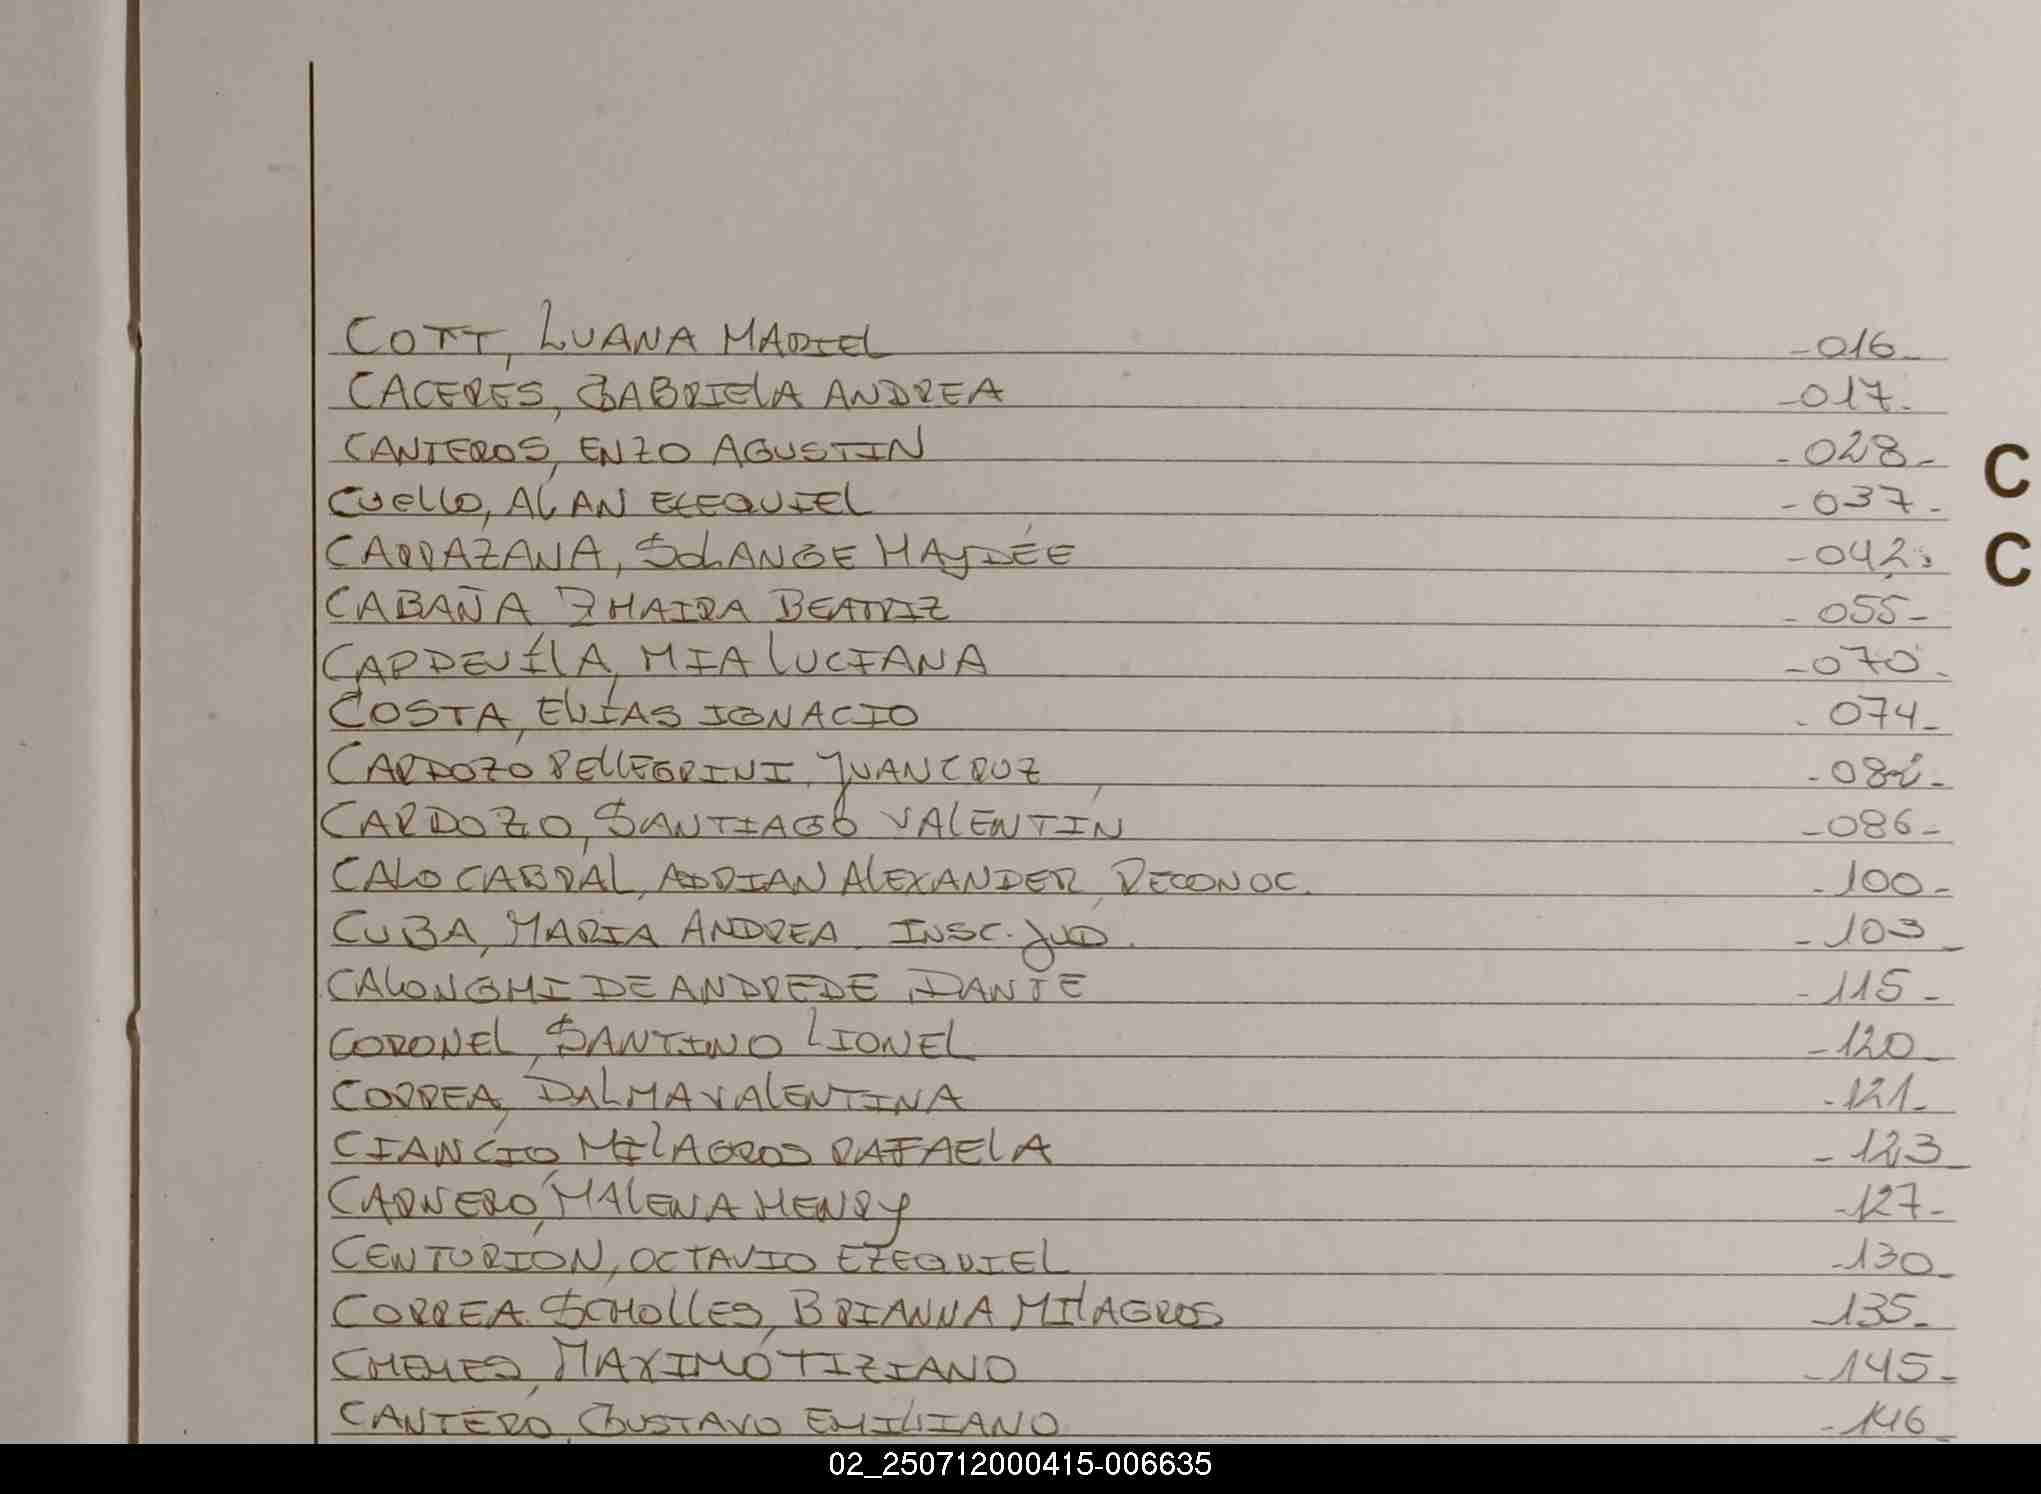 COTT, LUANA MARIEL -016-
CACERES, GABRIELA ANDREA -017-
CANTEROS, ENZO AGUSTIN -028-
CUELLO, ALAN EZEQUIEL -037-
CARRAZANA, SOLANGE HAYDÉE -042-
CABAÑA ZHAIRA BEATRIZ -055-
CAPDEVÍLA, MIA LUCIANA -070-
COSTA, ELÍAS IGNACIO -074-
CARDOZO PELLEGRINI, JUAN CRUZ
CARDOZO, SANTIAGO VALENTÍN -086-
CALO CABRAL, ADRIAN ALEXANDER RECONOC. -100-
CUBA, MARIA ANDREA INSC. JUD. -103-
CALONGHI DE ANDREDE, DANTE -115-
CORONEL, SANTINO LIONEL -120-
CORREA, DALMA VALENTINA -121-
CIANCIO, MILAGROS RAFAELA -123-
CARNERO, MALENA HENRY -127-
CENTURIÓN, OCTAVIO EZEQUIEL -130-
CORREA SCHOLLES, BRIANNA MILAGROS -135-
CHEMES, MAXIMO TIZIANO -145-
CANTERO, GUSTAVO EMILIANO -146-
C
C
02_250712000415-006635